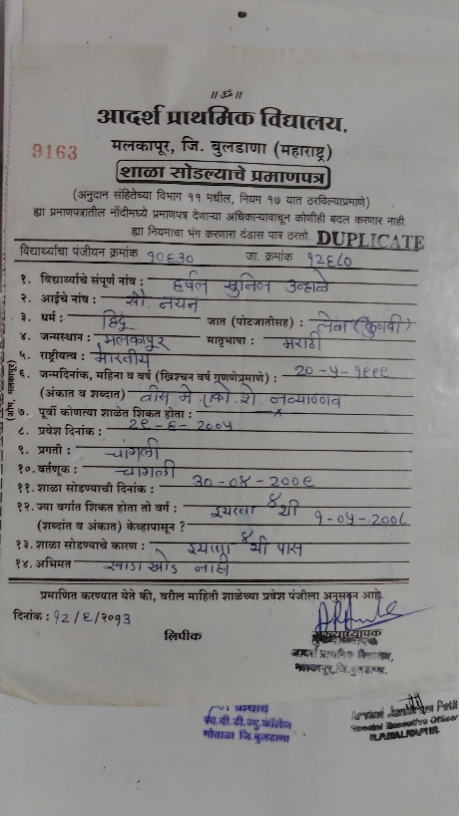 ॥ॐ॥
आदर्श प्राथमिक विद्यालय,
9163
मलकापूर, जि. बुलडाणा (महाराष्ट्र)
शाळा सोडल्याचे प्रमाणपत्र
(अनुदान संहितेच्या विभाग ११ मधील, नियम १७ यात ठरविल्याप्रमाणे)
ह्या प्रमाणपत्रातील नोंदीमध्ये प्रमाणपत्र देणाऱ्या अधिकाऱ्यावाचून कोणीही बदल करणार नाही.
ह्या नियमाचा भंग करणारा दंडास पात्र ठरतो. DUPLICATE
विद्यार्थ्याचा पंजीयन क्रमांक १०६३० जा. क्रमांक १२६८०
१. विद्यार्थ्याचे संपूर्ण नांव : हर्षल सुनिल उन्हाळे
२. आईचे नांव : सौ. नयन
३. धर्म : हिंदू जात (पोटजातीसह) : लेवा (कुणबी)
४. जन्मस्थान : मलकापूर मातृभाषा : मराठी
५. राष्ट्रीयत्व : भारतीय
६. जन्मदिनांक, महिना व वर्ष (ख्रिश्चन वर्ष गणनेप्रमाणे) : २०-५-१९९९
(अंकात व शब्दात) वीस मे एकोणीशे नव्याण्णव
७. पूर्वी कोणत्या शाळेत शिकत होता :
८. प्रवेश दिनांक : २९-६-२००५
९. प्रगती : चांगली
१०. वर्तणूक : चांगली
११. शाळा सोडण्याची दिनांक : ३०-०४-२००९
१२. ज्या वर्गात शिकत होता तो वर्ग : इयत्ता ४थी
(शब्दांत व अंकात) केव्हापासून ? १-०५-२००८
१३. शाळा सोडण्याचे कारण : इयत्ता ४थी पास
१४. अभिमत खाडाखोड नाही
प्रमाणित करण्यात येते की, वरील माहिती शाळेच्या प्रवेश पंजीला अनुसरून आहे.
दिनांक : १२/६/२०१३
लिपीक मुख्याध्यापक
आदर्श प्राथमिक विद्यालय,
मलकापूर, जि. बुलडाणा.
प्राचार्य
मोताळा जि. बुलडाणा
Special Executive Officer